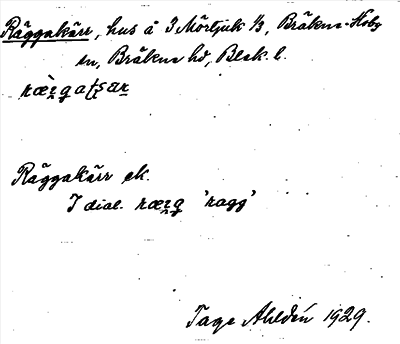 Räggakärr, hus å 3 Mörtjuk 1/3, Bräkne-Hoby
sn, Bräkne hd, Blek. l.
Räggakärr ek.
I dial. 'ragg'
Tage Ahldén 1929.